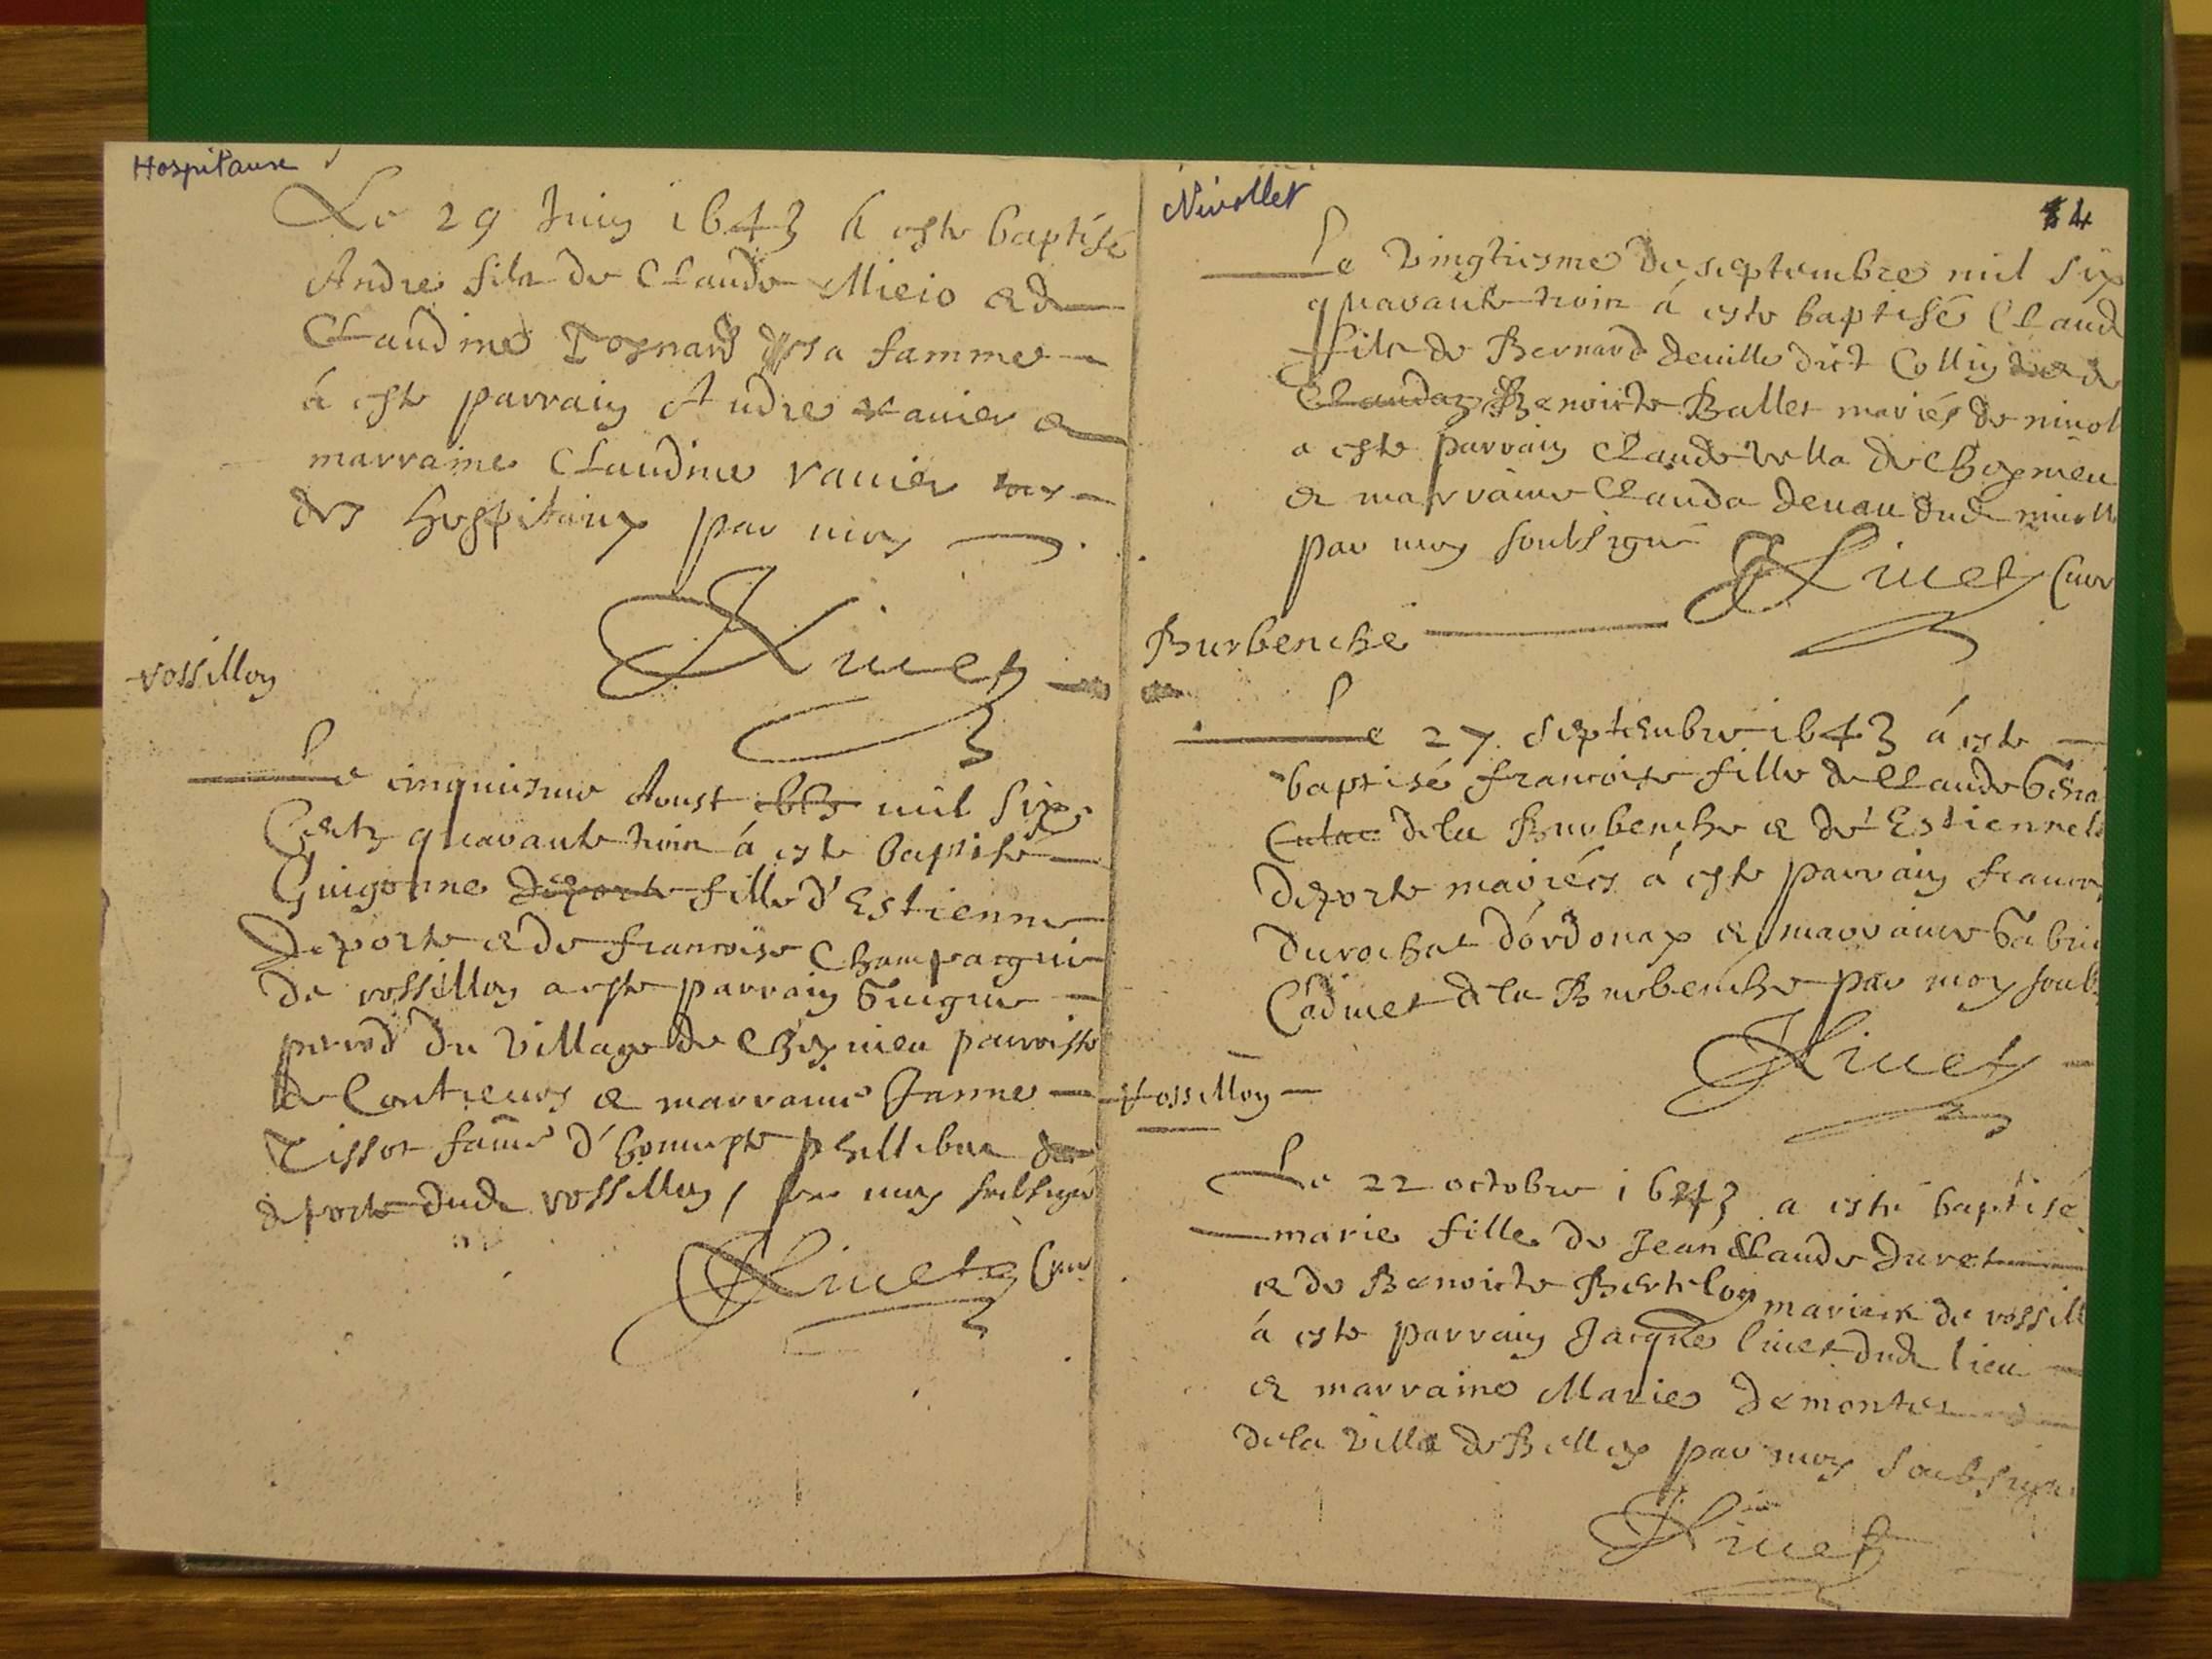 Hospitaux
Le 29 Juin 1643 a este baptisé
Andre filz de Claude Mieio & de
Claudine Tognard sa famme
á este parrain Andre vanier &
marraine Claudine vanier
des hospitaux par moy
Rivet
vossillon
Le cinquiesme Aoust mil six
Centz quarante trois á este baptisé
Guigonne deporte fille d'Estienne
deporte & de francoise Champaigne
de vossillon a este parrain Guigue
perrod du village de Chesnieu parroisse
de Contrevos & marraine Janne
Tissot famē d'honneste phillibert de
deporte dud. vossillon, par moy soubsigné
Rivet Cure
Nivollet
4
Le vingtiesme de septembre mil six
quarante trois á este baptisé Claud
filz de Bernard deville dict Collin & de
Claudaz Benoicte Ballet mariés de nivol
a este parrain Claude vella de Chogneu
& marraine Clauda Devau dud. nivoll
par moy soubsigné
Rivet Cure
Burbenche
Le 27 septembre 1643 á este
baptisé francoise fille de Claude
de la Burbenche & de Estiennet
deporte mariés á este parrain francoi
durochat d'ordonax & marraine Gabrie
Cadinet de la Burbenche par moy soub
Rivet
Vossillon
Le 22 octobre 1643 a esté baptisé
marie fille de Jean Claude Duret
& de Benoicte Berthelon mariés de vossill
á este parrain Jacques livet dud. lieu
& marraine Marie Demontes
de la ville de Belley par moy soubsigne
Rivet